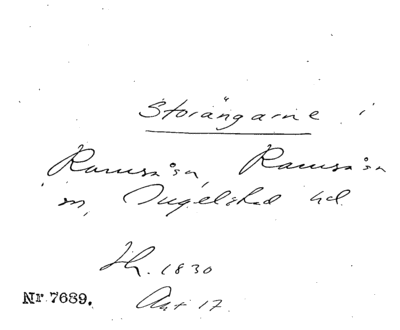 Storängarne i
Ramsåsa, Ramsåsa
sn, Ingelstad hd.
Hh. 1830
Akt 17.
Nr 7689.